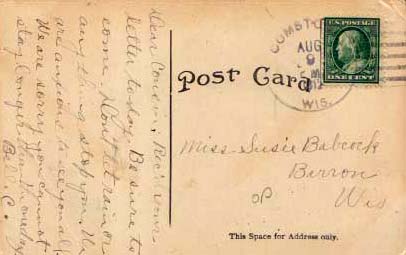 Dear Cousin; Rec'd your
letter today. Be sure to
come. Don't let rain or
anything stop you. We
are anxious to see you all.
We are sorry you cannot
stay longer than one day.
Bell C.
Post Card
COMST
AUG
9
M
WIS.
U.S. POSTAGE
ONE CENT
Miss Susie Babcock
Barron
Wis
OP
This Space for Address only.